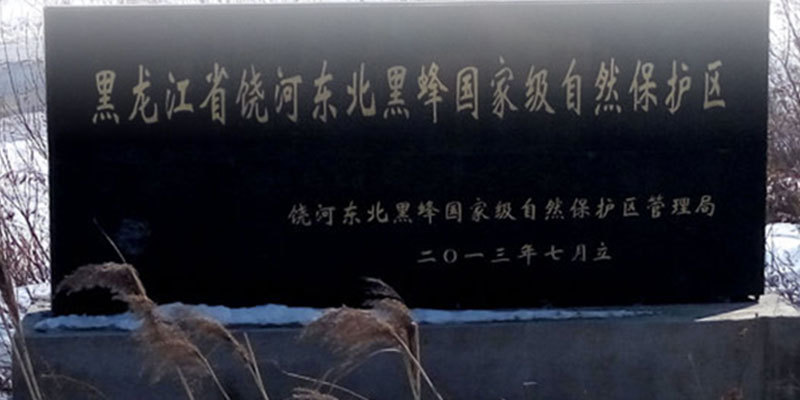 黑龙江省饶河东北黑蜂国家级自然保护区
饶河东北黑蜂国家级自然保护区管理局
二〇一三年七月立